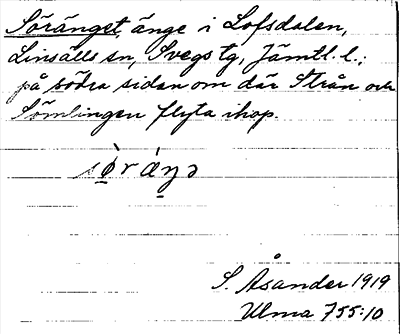 Söränget, änge i Lofsdalen,
Linsälls sn, Svegs tg, Jämtl. l.;
på södra sidan om där Strån och
Sömlingen flyta ihop.
sø̀ráŋə
S. Åsander 1919
Ulma 755:10